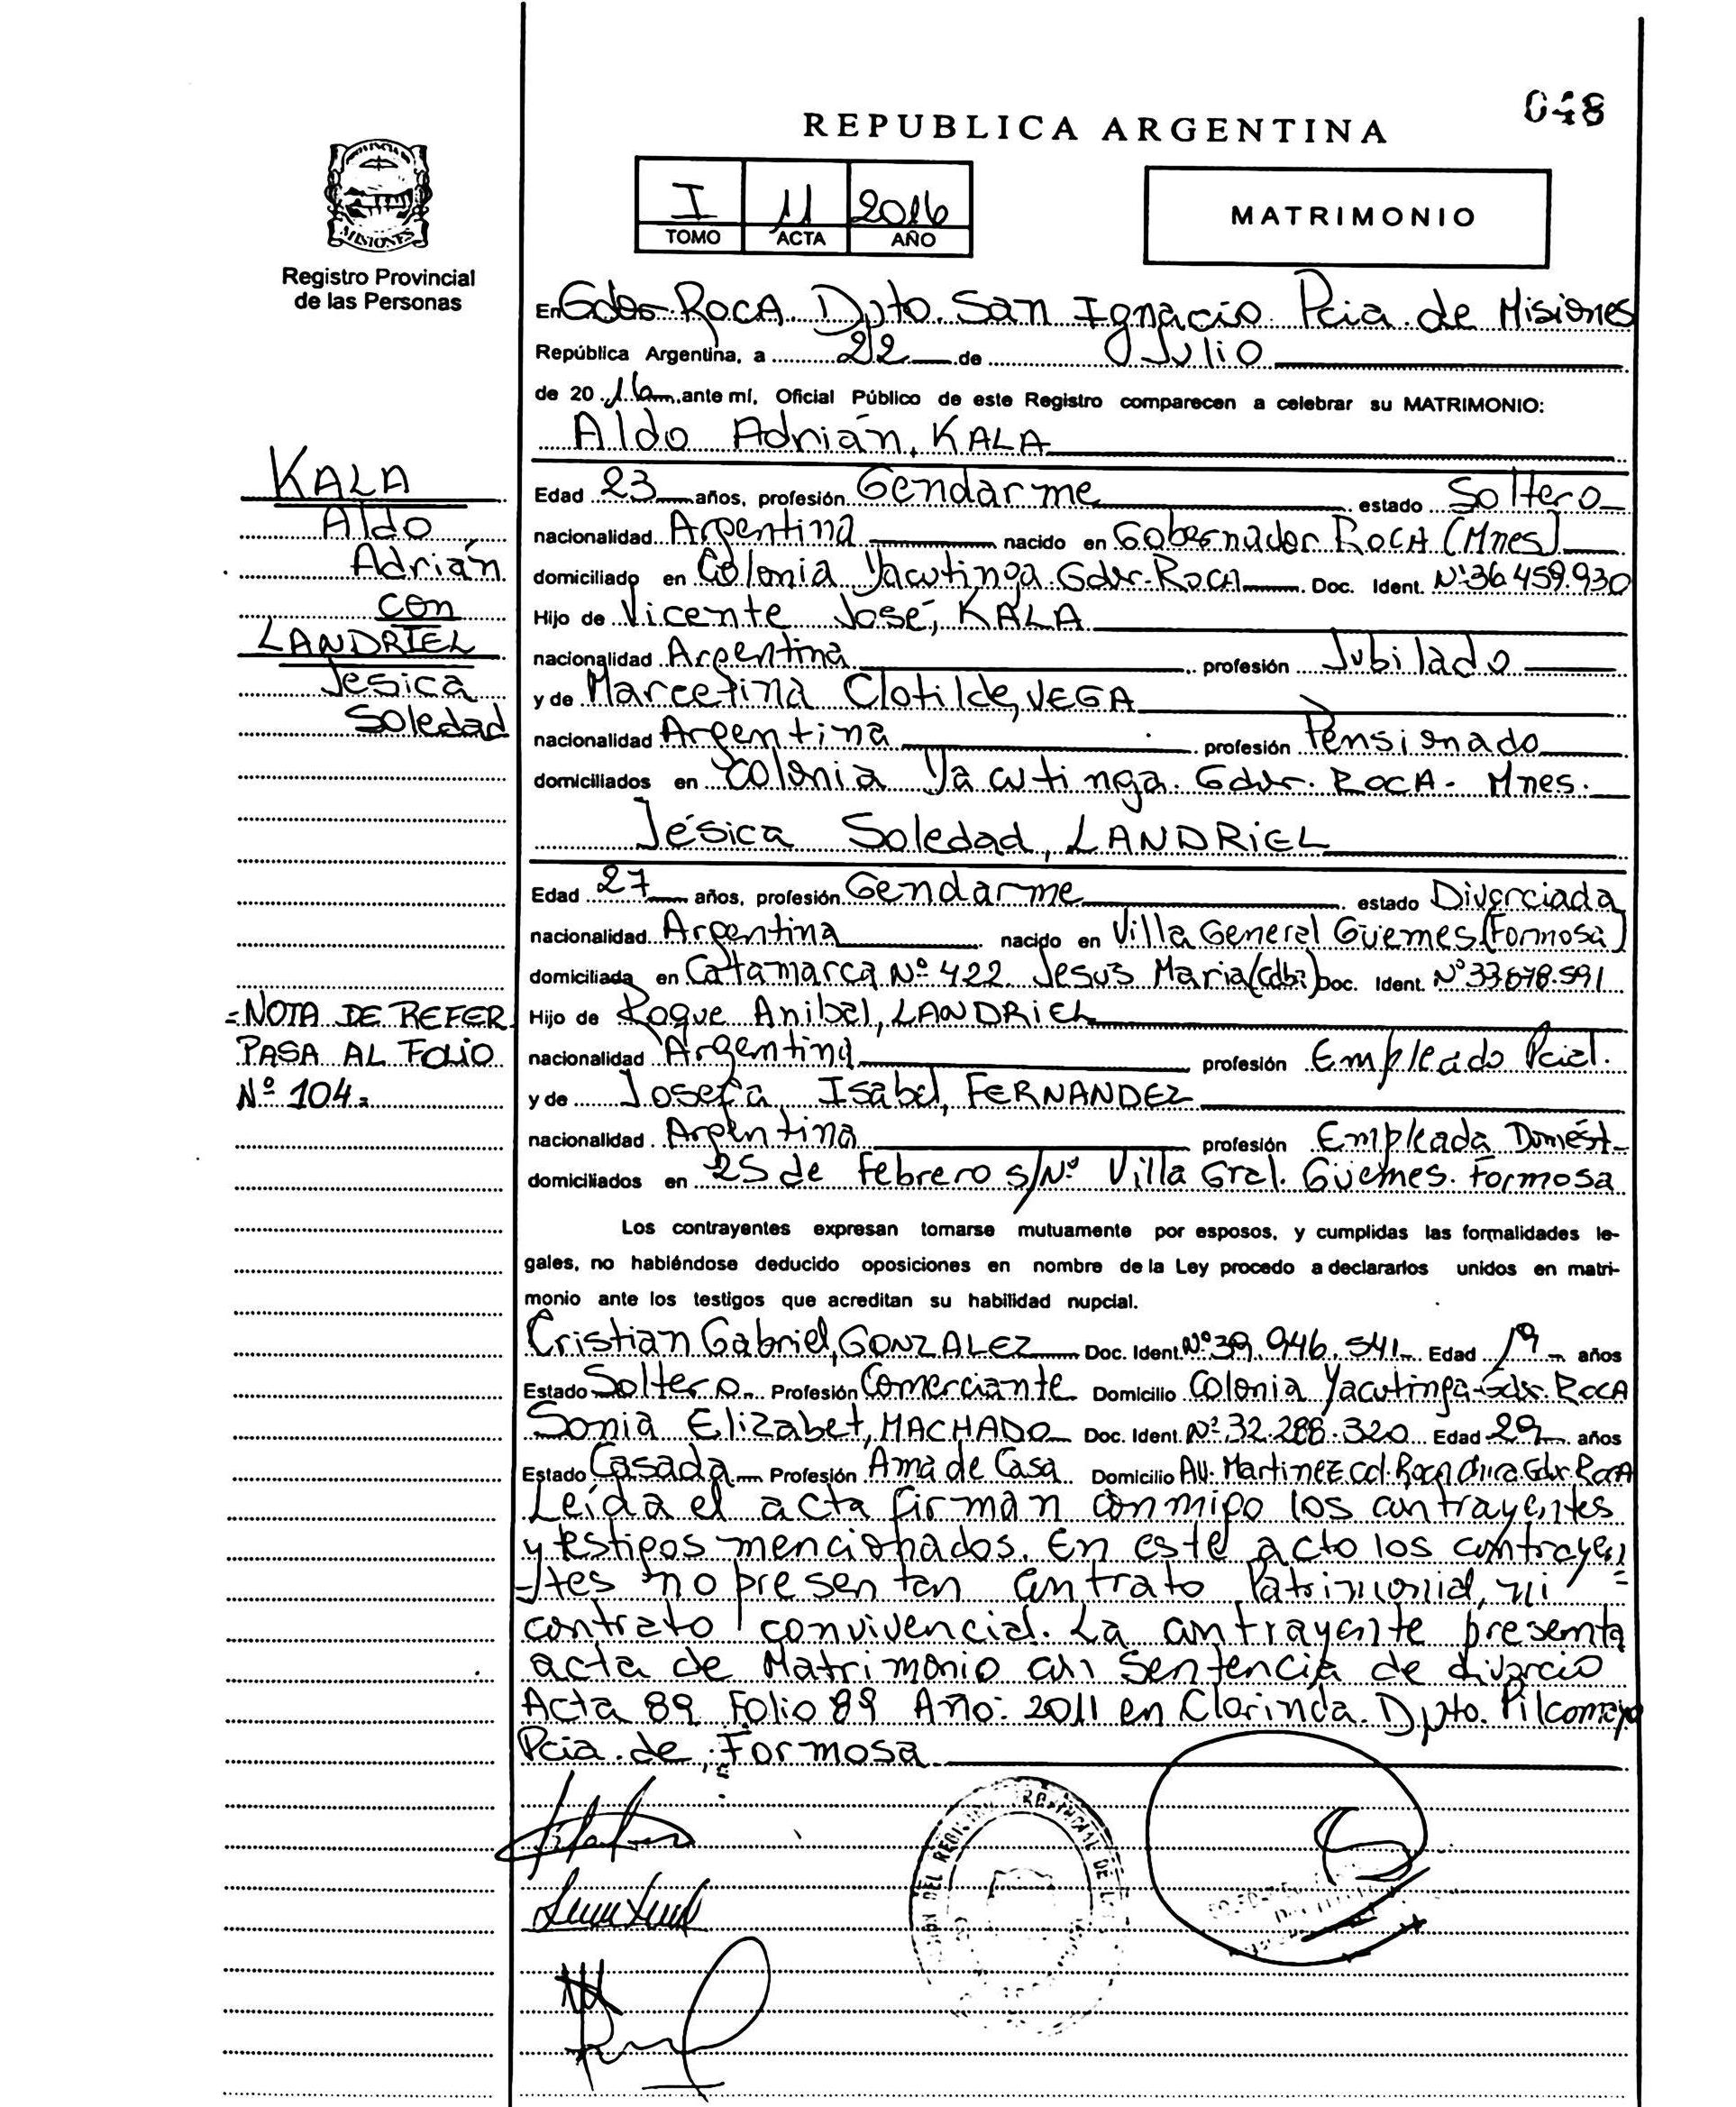 048
REPUBLICA ARGENTINA
MISIONES
Registro Provincial
de las Personas
I 11 2016
TOMO ACTA AÑO
MATRIMONIO
En Gdor. ROCA. Dpto. San Ignacio. Pcia. de Misiones
República Argentina, a 22 de Julio
de 2016 ante mí, Oficial Público de este Registro comparecen a celebrar su MATRIMONIO:
Aldo Adrián, KALA
KALA
Aldo
Adrián
con
LANDRIEL
Jesica
Soledad
Edad 23 años, profesión Gendarme estado Soltero
nacionalidad Argentina nacido en Gobernador ROCA (Mnes)
domiciliado en Colonia Yacutinga. Gdor. ROCA Doc. Ident. Nº 36.459.930
Hijo de Vicente José, KALA
nacionalidad Argentina profesión Jubilado
y de Marcelina Clotilde, VEGA
nacionalidad Argentina profesión Pensionado
domiciliados en Colonia Yacutinga. Gdor. ROCA. Mnes.
Jésica Soledad, LANDRIEL
Edad 27 años, profesión Gendarme estado Divorciada
nacionalidad Argentina nacido en Villa General Güemes (Formosa)
domiciliada en Catamarca Nº 422 Jesús Maria (cdba) Doc. Ident. Nº 33.678.591
Hijo de Roque Anibal, LANDRIEL
nacionalidad Argentina profesión Empleado Pcial.
y de Josefa Isabel, FERNANDEZ
nacionalidad Argentina profesión Empleada Domést.
domiciliados en 25 de Febrero s/Nº Villa Gral. Güemes. Formosa
= NOTA DE REFER.
PASA AL FOLIO
Nº 104 =
Los contrayentes expresan tomarse mutuamente por esposos, y cumplidas las formalidades le-
gales, no habiéndose deducido oposiciones en nombre de la Ley procedo a declararlos unidos en matri-
monio ante los testigos que acreditan su habilidad nupcial.
Cristian Gabriel, GONZALEZ Doc. Ident. Nº 39.946.541 Edad 19 años
Estado Soltero Profesión Comerciante Domicilio Colonia Yacutinga-Gdor. ROCA
Sonia Elizabet, MACHADO Doc. Ident. Nº 32.288.320 Edad 29 años
Estado Casada Profesión Ama de Casa Domicilio Av. Martinez Col. Roca Chica Gdor ROCA
Leída el acta firman conmigo los contrayentes
y testigos mencionados. En este acto los contrayen
-tes no presentan contrato Patrimonial, ni =
contrato convivencial. La contrayente presenta
acta de Matrimonio con sentencia de divorcio
Acta 89 Folio 89 Año: 2011 en Clorinda. Dpto. Pilcomayo
Pcia. de Formosa
DEL REGISTRO PROVINCIAL DE